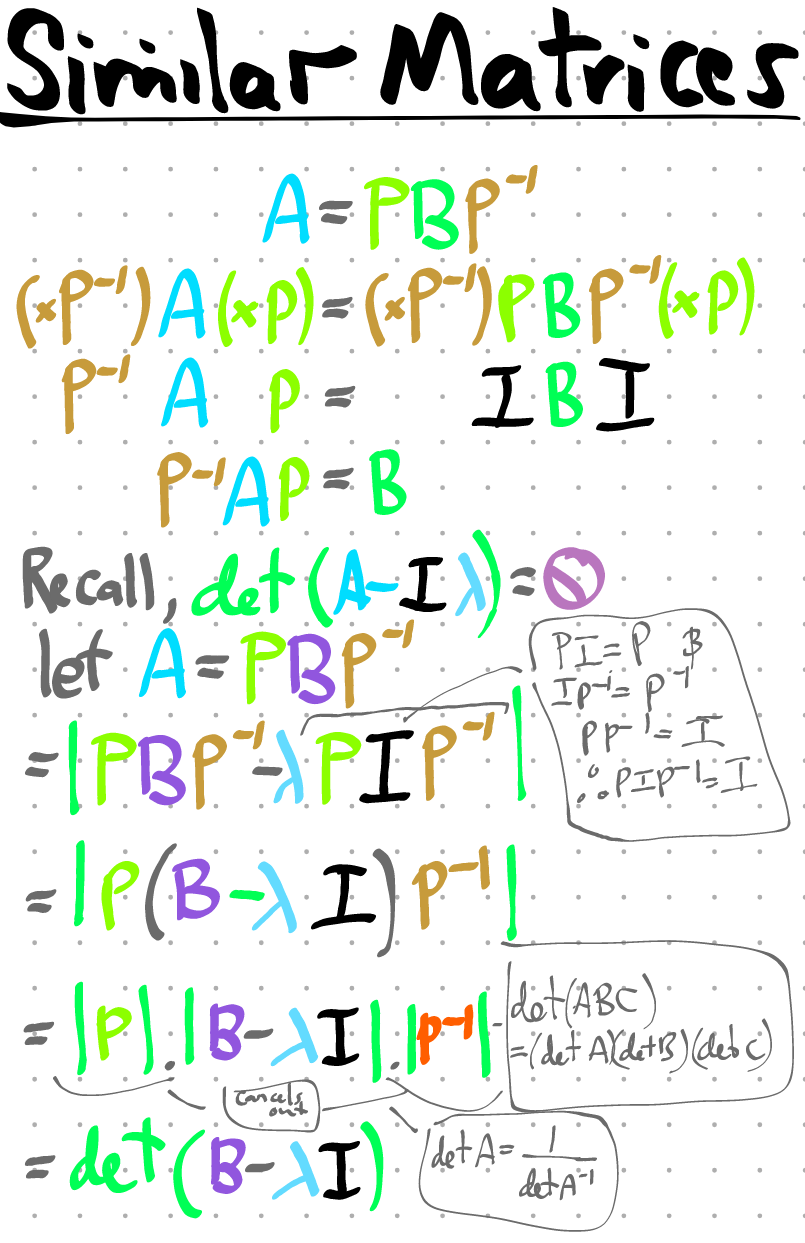 Similar Matrices
A = PBP⁻¹
(×P⁻¹) A (×P) = (×P⁻¹) P B P⁻¹ (×P)
P⁻¹ A P = I B I
P⁻¹AP = B
Recall, det(A-Iλ) = 0
let A = PBP⁻¹
= |PBP⁻¹-λPIP⁻¹|
PI = P &
IP⁻¹ = P⁻¹
PP⁻¹ = I
∴ PIP⁻¹ = I
= |P(B-λI)P⁻¹|
= |P|.|B-λI|.|P⁻¹|
det(ABC)
= (det A)(det B)(det C)
Cancels
out
= det(B-λI)
det A = 1/det A⁻¹